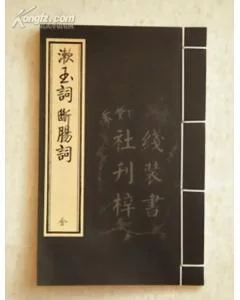 Kongfz.com
漱玉詞 斷腸詞
全
线装書
社刊梓